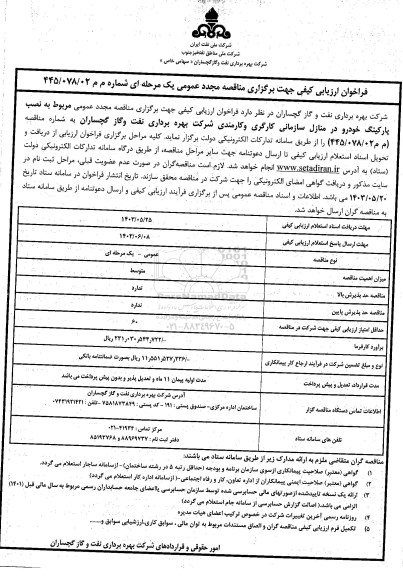 شرکت ملی نفت ایران
شرکت ملی مناطق نفتخیز جنوب
شرکت بهره برداری نفت و گاز گچساران « سهامی خاص »
فراخوان ارزیابی کیفی جهت برگزاری مناقصه مجدد عمومی یک مرحله ای شماره م م ۴۴۵/۰۷۸/۰۲
شرکت بهره برداری نفت و گاز گچساران در نظر دارد فراخوان ارزیابی کیفی جهت برگزاری مناقصه مجدد عمومی مربوط به نصب
پارکینگ خودرو در منازل سازمانی کارگری وکارمندی شرکت بهره برداری نفت وگاز گچساران به شماره مناقصه
(م م ۴۴۵/۰۷۸/۰۲) را از طریق سامانه تدارکات الکترونیکی دولت برگزار نماید. کلیه مراحل برگزاری فراخوان ارزیابی از دریافت و
تحویل اسناد استعلام ارزیابی کیفی تا ارسال دعوتنامه جهت سایر مراحل مناقصه، از طریق درگاه سامانه تدارکات الکترونیکی دولت
(ستاد) به آدرس www.setadiran.ir انجام خواهد شد. لازم است مناقصه‌گران در صورت عدم عضویت قبلی، مراحل ثبت نام در
سایت مذکور و دریافت گواهی امضای الکترونیکی را جهت شرکت در مناقصه محقق سازند. تاریخ انتشار فراخوان در سامانه ستاد تاریخ
۱۴۰۲/۰۵/۲۰ می باشد. اطلاعات و اسناد مناقصه عمومی پس از برگزاری فرآیند ارزیابی کیفی و ارسال دعوتنامه از طریق سامانه ستاد
به مناقصه گران ارسال خواهد شد.
مهلت دریافت اسناد استعلام ارزیابی کیفی ۱۴۰۲/۰۵/۲۵
مهلت ارسال پاسخ استعلام ارزیابی کیفی ۱۴۰۲/۰۶/۰۸
نوع مناقصه عمومی – یک مرحله ای
میزان اهمیت مناقصه متوسط
مناقصه حد پذیرش بالا ندارد
مناقصه حد پذیرش پایین ندارد
حداقل امتیاز ارزیابی کیفی جهت شرکت در مناقصه ۶۰
برآورد کارفرما ۲۳۱,۰۳۰,۵۴۴,۷۲۲/- ریال
نوع و مبلغ تضمین شرکت در فرآیند ارجاع کار پیمانکاری ۱۱,۵۵۱,۵۳۷,۲۳۶/- ریال بصورت ضمانتنامه بانکی
مدت قرارداد تعدیل و پیش پرداخت مدت اولیه پیمان ۱۱ ماه و تعدیل پذیر و بدون پیش پرداخت می باشد
اطلاعات تماس دستگاه مناقصه گزار آدرس شرکت بهره برداری نفت و گاز گچساران
ساختمان اداره مرکزی- صندوق پستی : ۱۹۱ – کد پستی : ۷۵۸۱۸۷۳۸۴۹ -تلفن : ۰۷۴۳۱۹۲۱۴۳۱
تلفن های سامانه ستاد مرکز تماس : ۴۱۹۳۴-۰۲۱
دفتر ثبت نام : ۸۸۹۶۹۷۳۷ و ۸۵۱۹۳۷۶۸
مناقصه گران متقاضی ملزم به ارائه مدارک زیر از طریق سامانه ستاد می باشند:
۱) گواهی (معتبر) صلاحیت پیمانکاری ازسوی سازمان برنامه و بودجه (حداقل رتبه ۵ در رشته ساختمان) -ازسامانه ساجار استعلام می گردد.
۲) گواهی (معتبر) صلاحیت ایمنی پیمانکاران از اداره تعاون، کار و رفاه اجتماعی -(ازسامانه اداره کار استعلام می گردد)
۳) ارائه یک نسخه تاییدشده ازصورتهای مالی حسابرسی شده توسط سازمان حسابرسی یااعضای جامعه حسابداران رسمی مربوط به سال مالی قبل (۱۴۰۱)
الزامی می باشد(اصالت گزارش حسابرسی از سامانه جام استعلام می گردد)
۴) روزنامه رسمی آخرین تغییرات شرکت در خصوص ترکیب اعضای هیات مدیره
۵) تکمیل فرم ارزیابی کیفی مناقصه گران و الصاق مستندات مربوط به توان مالی ، سوابق کاری،ارزشیابی سوابق و.....
امور حقوقی و قراردادهای شرکت بهره برداری نفت و گاز گچساران